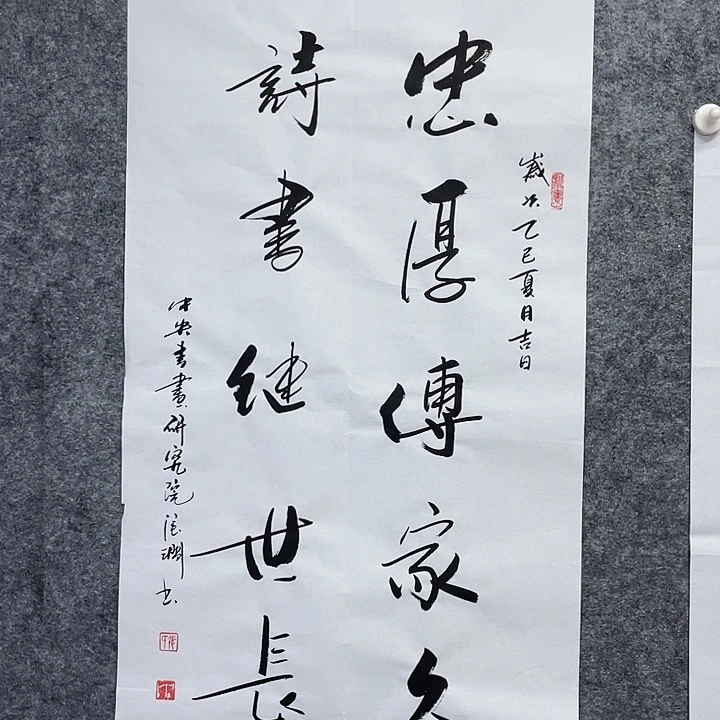 歲次乙巳夏月吉日
忠厚傳家久
詩書継世長
中央書畫研究院
书